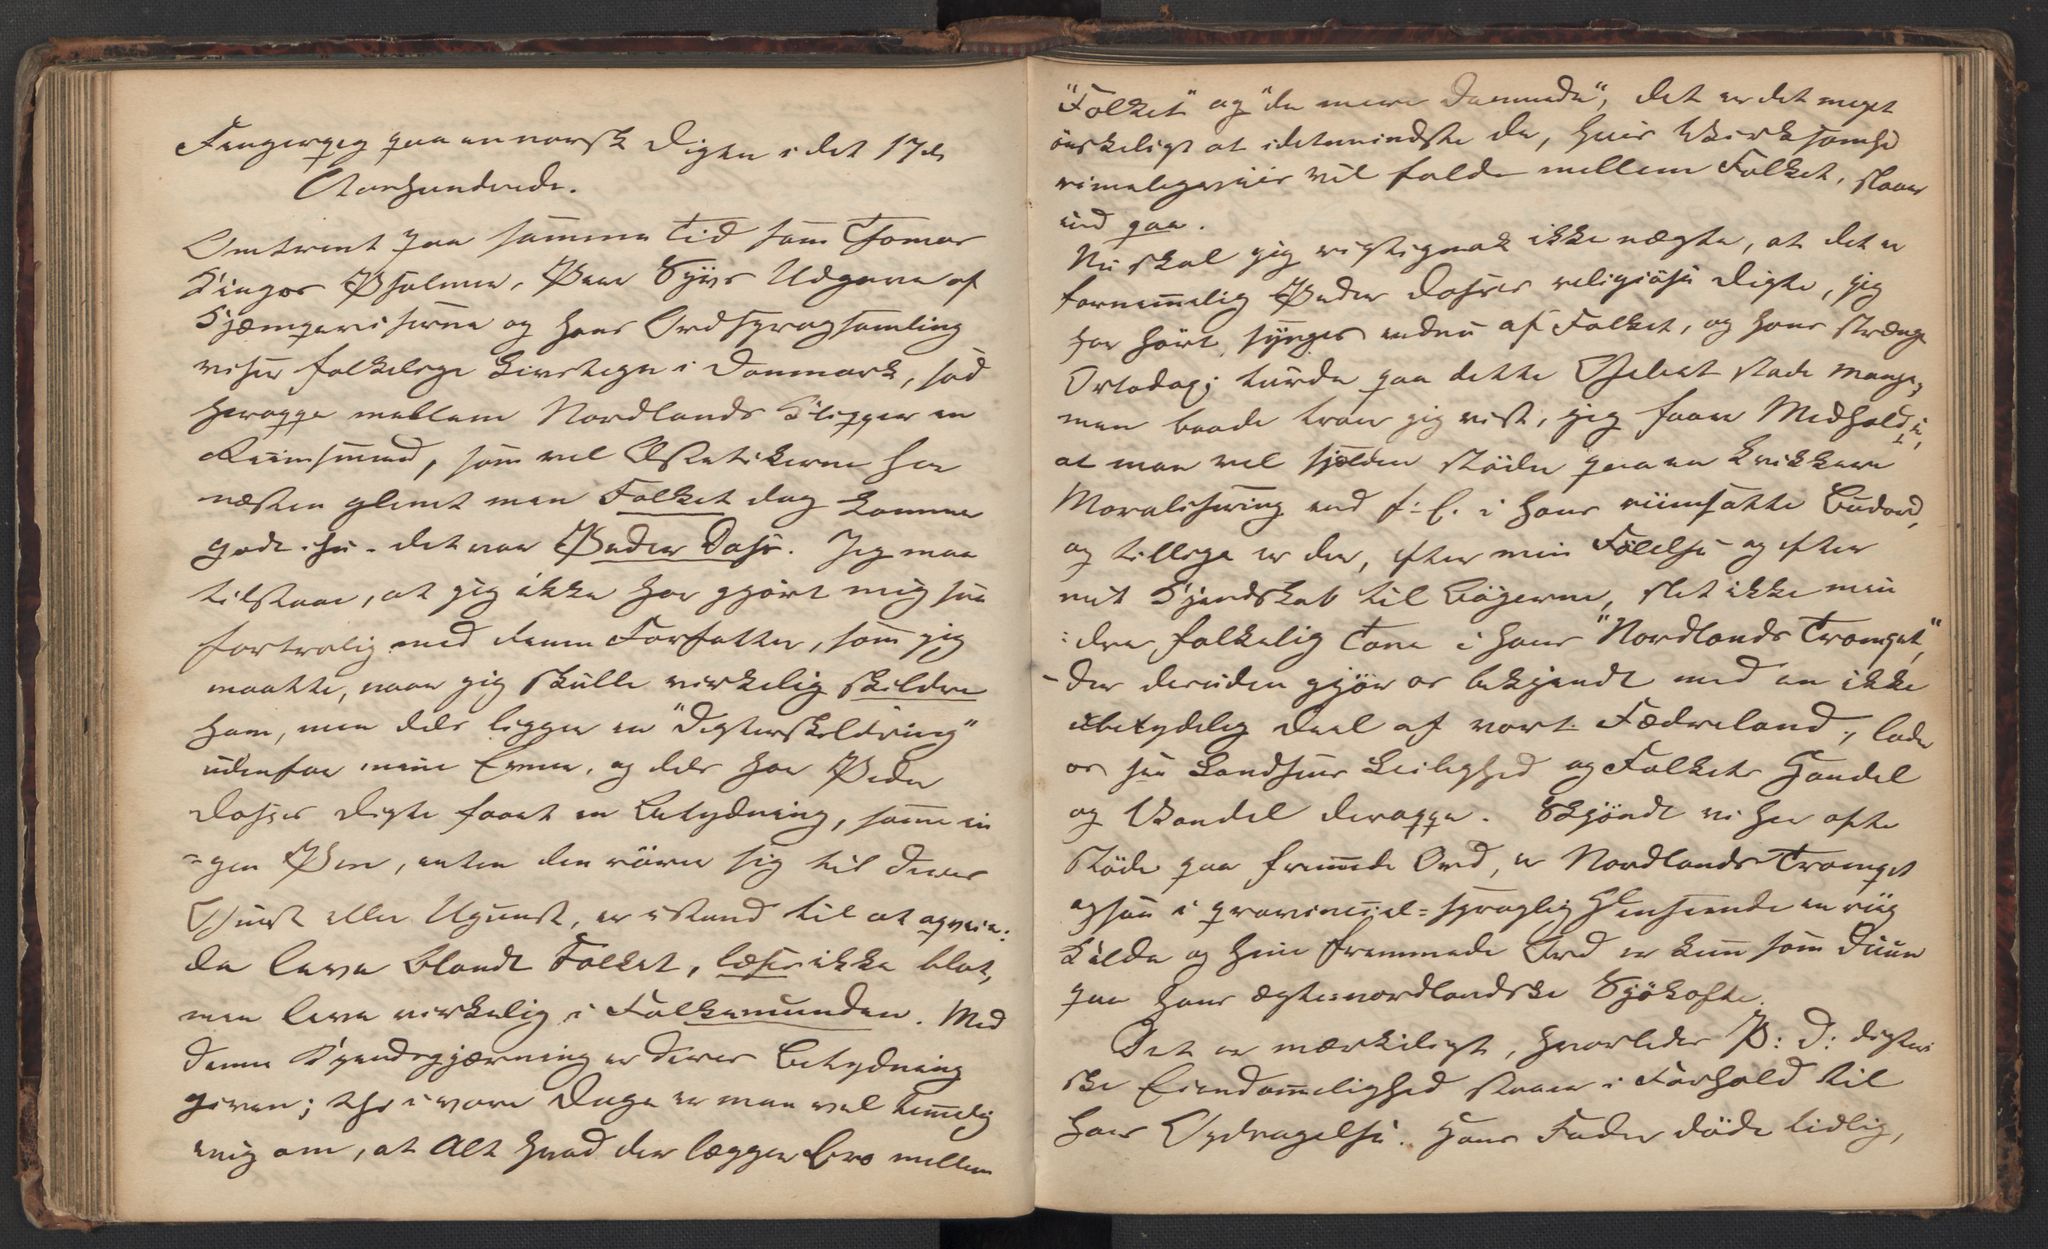 Fingerpeg paa en norsk Digter i det 17de
Aarhundrede.
Omtrent paa samme Tid som Thomas
Kingos Psalmer, Peer Syvs Udgave af
Kjæmpeviserne og hans Ordsprogsamling
viser folkelige Livstegn i Danmark, sad
heroppe mellem Nordlands Klipper en
Riimsmed, som vel Æstetikerne har
næsten glemt men Folket dog komme
godt ihu - det var Peder Dass. Jeg maa
tilstaae, at jeg ikke har gjørt mig saa
fortrolig med denne Forfatter, som jeg
maatte, naar jeg skulle virkelig skildre
ham, men dels ligger en "Digterskildring"
udenfor mine Evner, og dels har Peder
Dasses Digte faaet en Betydning, somm in
-gen Pen, enten den rører sig til deres
Gunst eller Ugunst, er istand til at opveie:
de leve blandt Folket, læses ikke blot,
men leve virkelig i Folkemunden. Med
denne Kjendsgjærning er deres Betydning
given; thi i vore Dage er man vel temmelig
enig om, at Alt hvad der lægger Bro mellem
"Folket" og "de mere Dannede", det er det meget
ønskeligt at idetmindste de, hvis Virksomhed
rimeligviis vil falde mellem Folket, slaaer
ind paa.
Nu skal jeg rigtignok ikke nægte, at det er
fornemmelig Peder Dasses religiøse Digte, jeg
har hørt synges endnu af Folket, og hans strænge
Ortodoxi turde paa dette Gebeet støde Mange,
men baade troer jeg vist, jeg faaer Medhold i,
at man vel sjelden støder paa en kvikkere
Moralisering end f: E. i hans riimsatte Budord,
og tillige er der, efter min Følelse og efter
mit Kjendskab til Bøgerne, slet ikke min
:dre folkelig Tone i hans "Nordlands Trompet,"
der desuden gjør os bekjendt med en ikke
ubetydelig Deel af vort Fædreland, lader
os see Landsens Leilighed og Folkets Handel
og Vandel deroppe. Skjøndt vi her ofte
støde paa fremmede Ord, er Nordlands Trompet
ogsaa i provinciel-sproglig Henseende en riig
Kilde og hine fremmede Ord er kun som Duun
paa hans ægte nordlandske Sjøkofte.
Det er mærkeligt, hvorledes P: D: digteri
ske Eiendommelighed staaer i Forhold til
hans Opdragelse. Hans Fader døde tidlig,